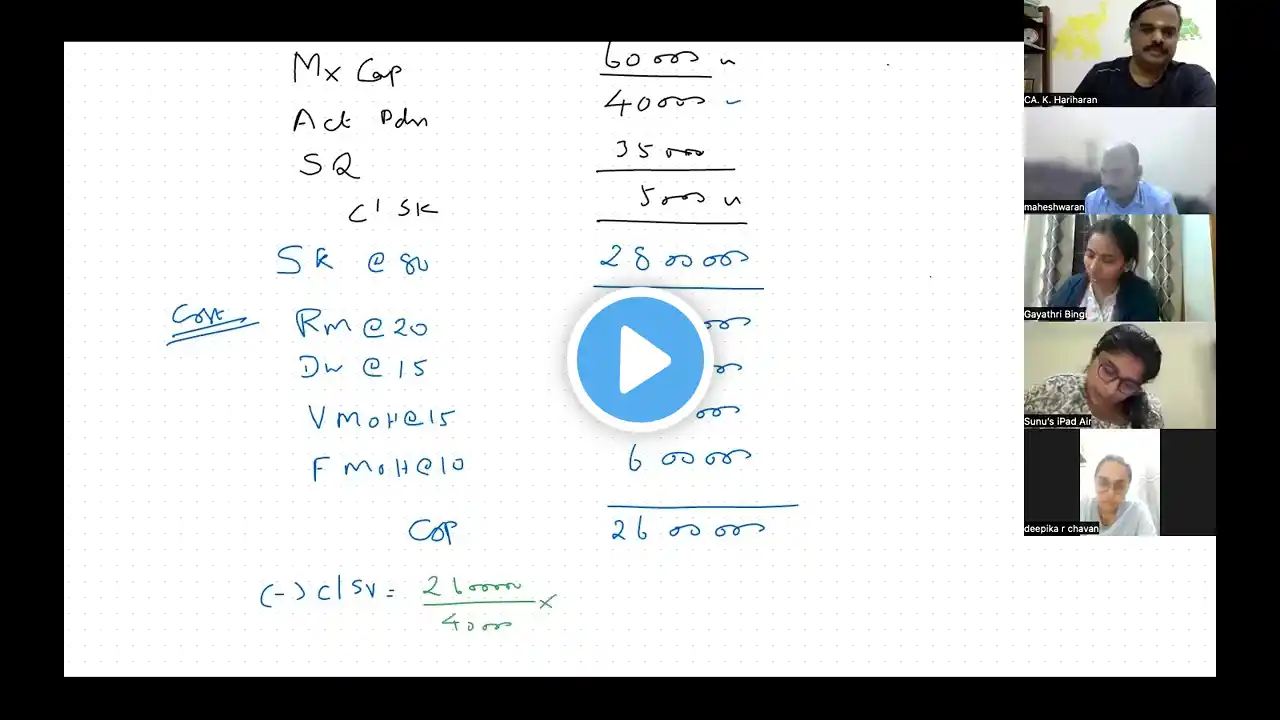 Mx Cap 60000 u
Act Pdn 40000
SQ 35000
c' SK 5000 u
SR @ 80 2800000
Cost
Rm @ 20
Dw @ 15
VMOH@15
FMOH@10 600000
COP 2600000
(-) c/ SV = 2600000 / 40000 ×
CA. K. Hariharan
maheshwaran
Gayathri Bingi
Sunu's iPad Air
deepika r chavan